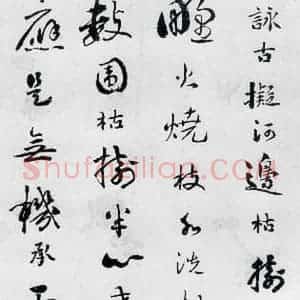 詠古擬河邊枯樹
野火燒枝水洗
數圍枯樹半心
應是無機承
Shufaziliao.COM